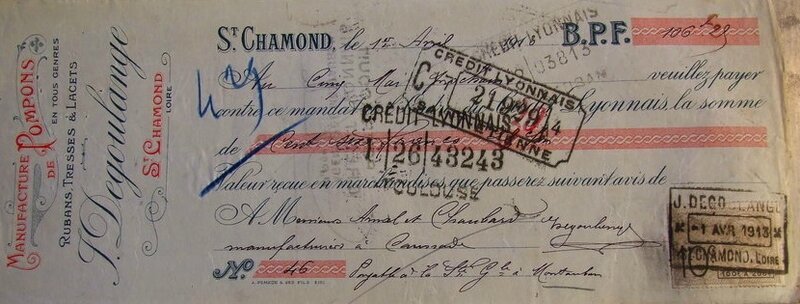 MANUFACTURE DE POMPONS
EN TOUS GENRES
RUBANS, TRESSES & LACETS
J. Degoulange
ST CHAMOND
LOIRE
ST CHAMOND, le 1er Avril B.P.F. 106 f 25
Au Cinq Mai Prochain veuillez payer
contre ce mandat Lyonnais, la somme
de Cent six francs
Valeur reçue en marchandises que passerez suivant avis de
A Messieurs et Degoulange
manufacturiers à Caussade
No 46 Payable à la Sté Gle à Montauban
409
CREDIT LYONNAIS
CRÉDIT LYONNAIS
L 26 43243
J. DEGOULANGE
-1 AVR 1913
ST CHAMOND, LOIRE